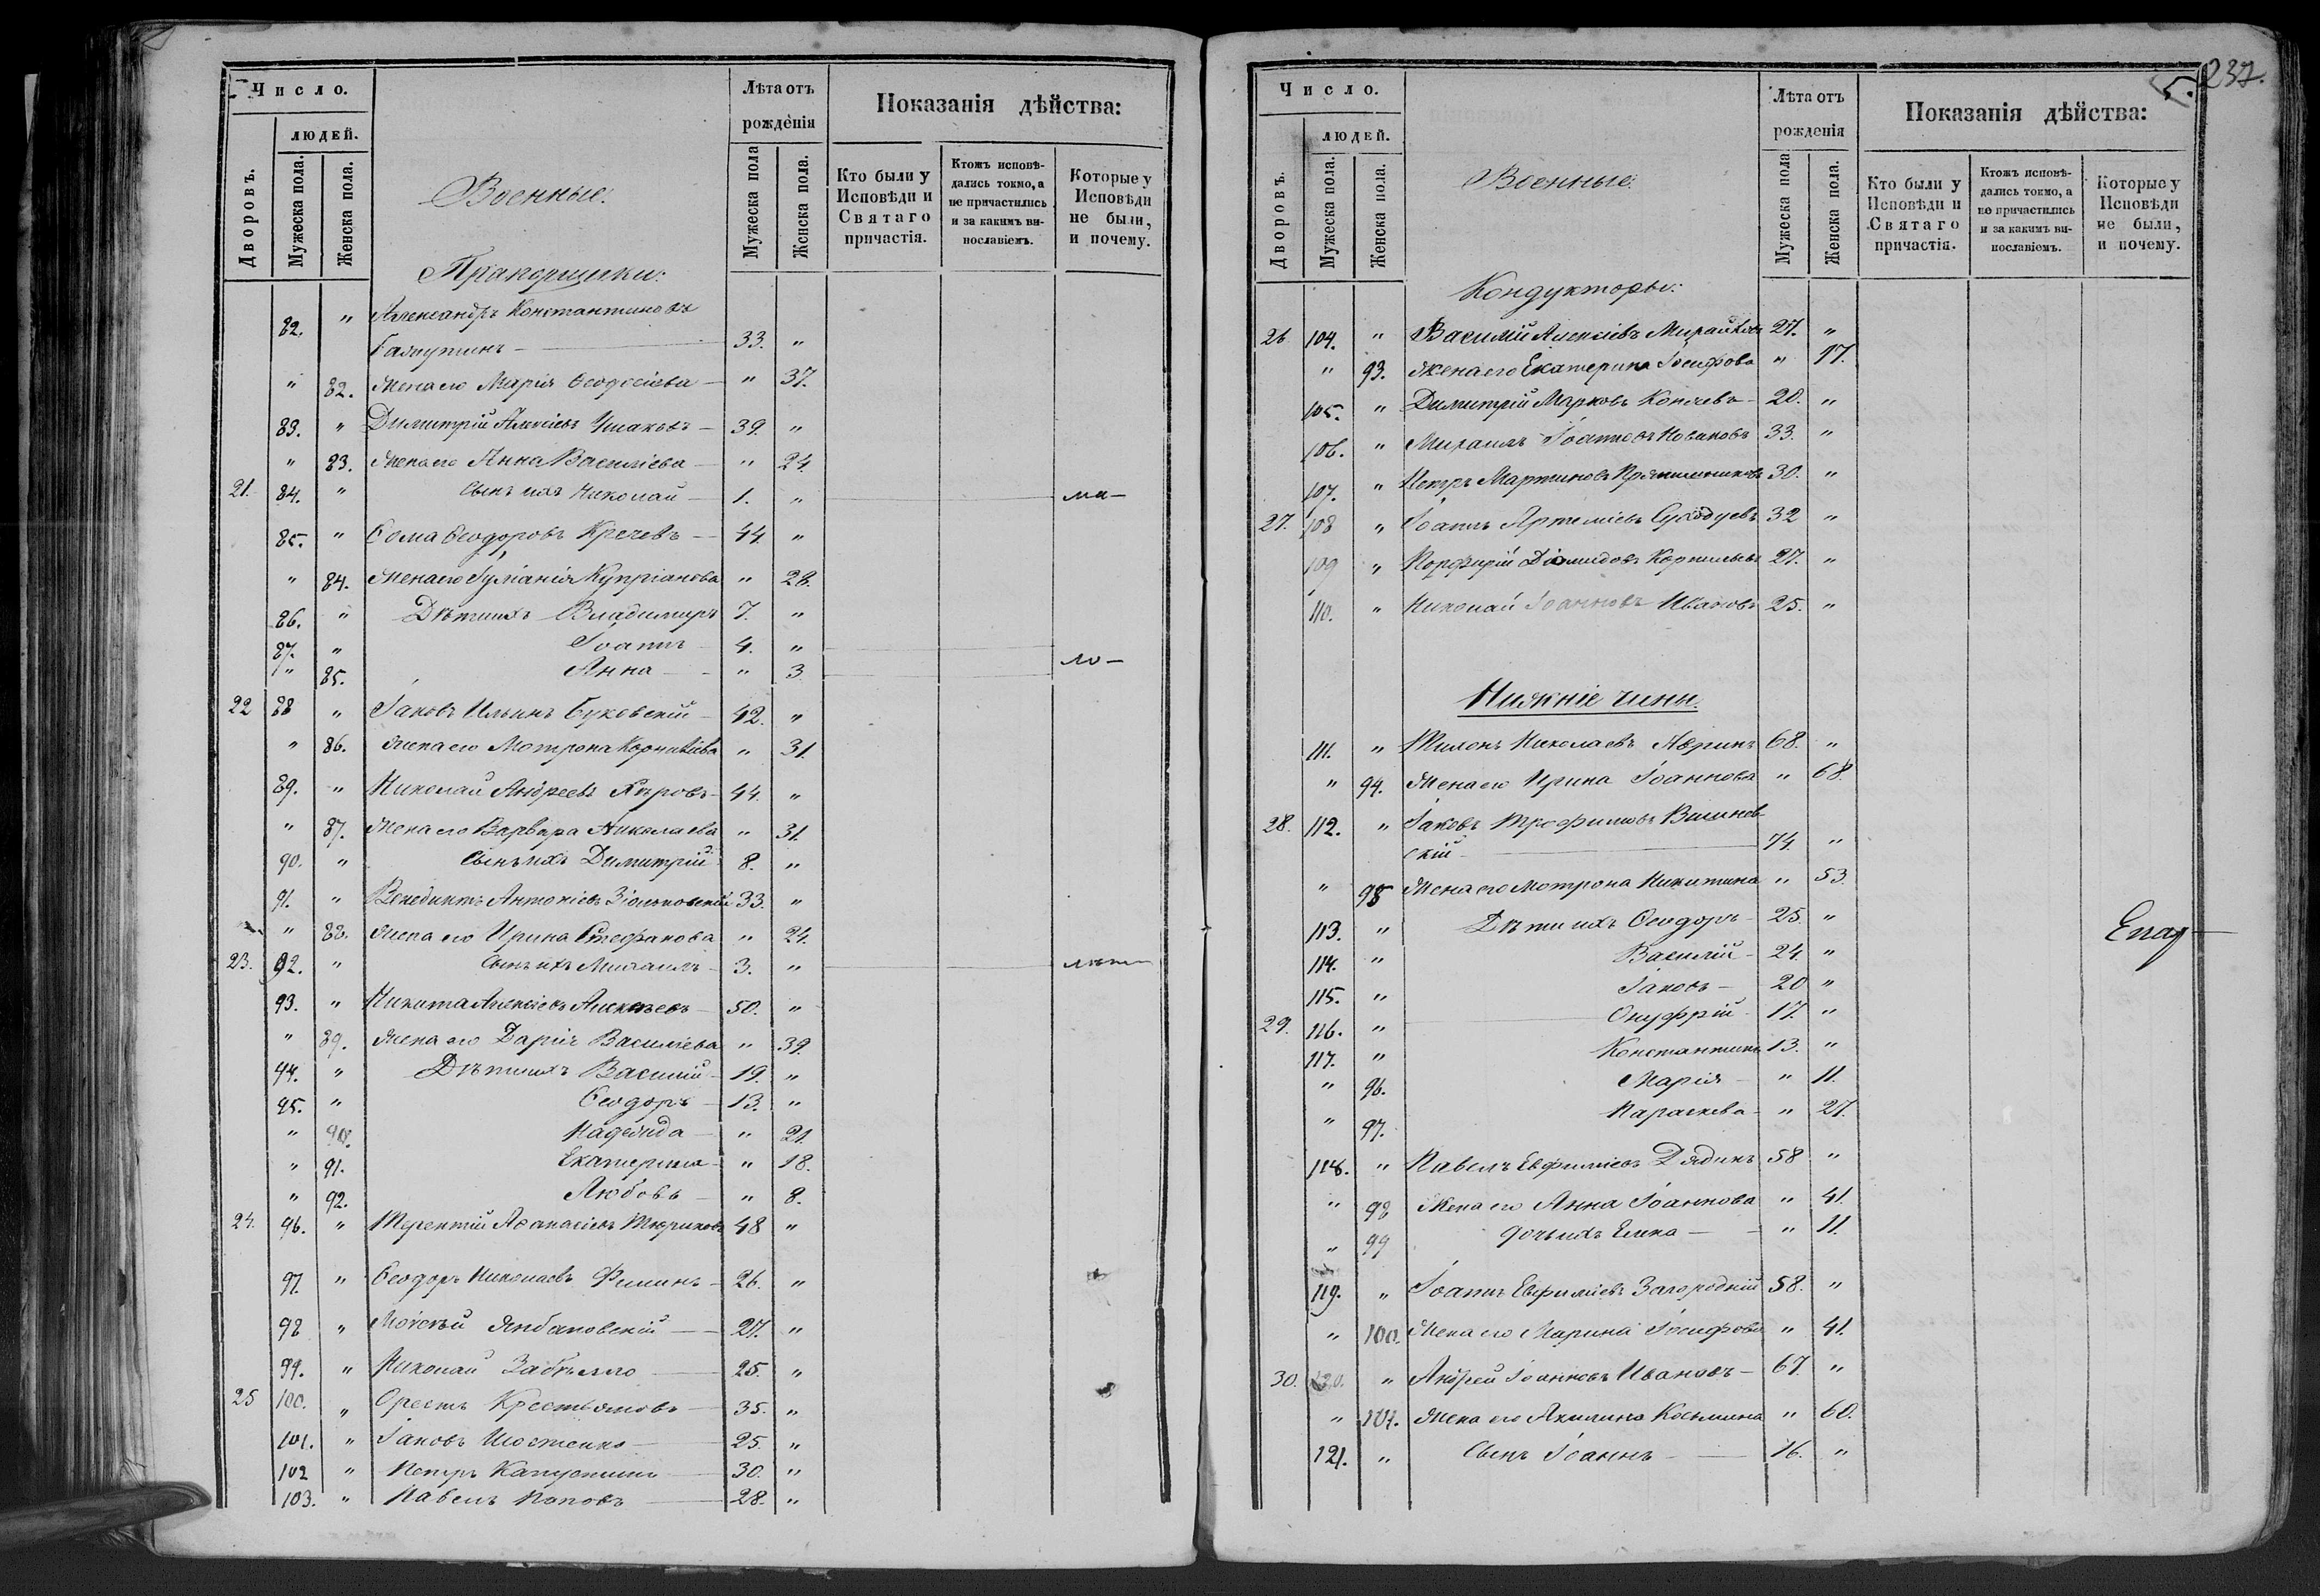 Число.
людей.
Дворовъ.
Мужеска пола.
Женска пола.
Военные:
Лѣта отъ
рожденія
Мужеска пола
Женска пола.
Показанія дѣйства:
Кто были у
Исповѣди и
Святаго
причастія.
Ктожъ исповѣ-
дались токмо, а
не причастились
и за какимъ ви-
нословіемъ.
Которые у
Исповѣди
не были,
и почему.
Прапорщики:
82. " Александръ Константиновъ
Галкутинъ — 33. "
" 82. Жена его Марія Ѳеодосіева — " 37.
83. " Димитрій Алексіевъ Ушаковъ — 39. "
" 83. Жена его Анна Василіева — " 24.
21. 84. " Сынъ ихъ Николай — 1. " ма—
85. " Ѳома Ѳеодоровъ Кречевъ — 44. "
" 84. Жена его Іуліанія Купріанова " 28.
86. " Дѣти ихъ Владимиръ 7. "
87. " Іоаннъ 4. "
" 85. Анна — " 3 ло—
22 88 " Іаковъ Ильинъ Буковскій — 42. "
" 86. Жена его Мотрона Корниліева " 31.
89. " Николай Андреевъ — 44. "
" 87. Жена его Варвара Николаева " 31.
90. " Сынъ ихъ Димитрій 8. "
91. " Венедиктъ Антоніевъ Зіольковскій 33. "
" 88. Жена его Ирина Стефанова " 24.
23. 92. " Сынъ ихъ Михаилъ — 3. " лѣт—
93. " Никита Алексіевъ Алексѣевъ — 50. "
" 89. Жена его Дарія Василіева " 39.
94. " Дѣти ихъ Василій — 19. "
95. " Ѳеодоръ — 13. "
" 90. Надежда — " 21.
" 91. Екатерина — " 18.
" 92. Любовь — " 8.
24. 96. " Терентій Аѳанасіевъ Тюриковъ 48 "
97. " Ѳеодоръ Николаевъ Филинъ — 26. "
98 " Моѵсей Янбаковскій — 27. "
99. " Николай Забѣлло — 25. "
25 100. " Орестъ Крестьяновъ — 35. "
101. " Іаковъ Шостенко — 25. "
102 " Петръ Капустинъ 30. "
103. " Павелъ Поповъ — 28. "
5. 237.
Число.
людей.
Дворовъ.
Мужеска пола.
Женска пола.
Военные:
Лѣта отъ
рожденія
Мужеска пола
Женска пола.
Показанія дѣйства:
Кто были у
Исповѣди и
Святаго
причастія.
Ктожъ исповѣ-
дались токмо, а
не причастились
и за какимъ ви-
нословіемъ.
Которые у
Исповѣди
не были,
и почему.
Кондукторы:
26 104. " Василій Алексіевъ 27. "
" 93. Жена его Екатерина Іосифова " 17.
105. " Димитрій Марковъ Копаевъ — 20. "
106. " Михаилъ Іоанновъ Новиковъ 33. "
107. " Петръ Мартиновъ Прянишниковъ 30. "
27. 108 " Іоаннъ Артеміевъ Суходуевъ 32 "
109 " Порфирій Діомидовъ Корнильевъ 27. "
110. " Николай Іоанновъ Ивановъ 25. "
Нижніе чины.
111. " Тихонъ Николаевъ Авринъ 68. "
" 94. Жена его Ирина Іоаннова " 68.
28. 112. " Іаковъ Трофимовъ Вишнев-
скій — 74. "
" 95 Жена его Мотрона Никитина " 53.
113. " Дѣти ихъ Ѳеодоръ — 25. "
114. " Василій — 24. "
115. " Іаковъ — 20 "
29. 116. " Онуфрій — 17. "
117. " Константинъ 13. "
" 96. Марія — " 11.
" 97. Параскева — " 27.
118. " Павелъ Евфиміевъ Дядинъ 58 "
" 98 Жена его Анна Іоаннова " 41.
" 99 дочь ихъ Елена — " 11.
119. " Іоаннъ Евфиміевъ Загородній 58. "
" 100. Жена его Марина Іосифова " 41.
30. 120. " Андрей Іоанновъ Ивановъ — 67. "
" 101. Жена его Акилина Косьмина " 60.
121. " Сынъ Іоаннъ — 16. "